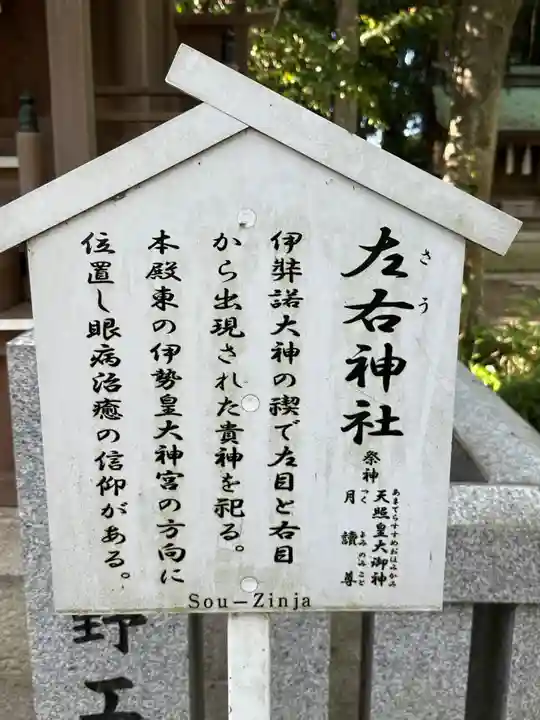 左右神社
さう
祭神
天照皇大御神
あまてらすすめおほみかみ
月讀尊
つくよみのみこと
伊弉諾大神の禊で左目と右目
から出現された貴神を祀る。
本殿東の伊勢皇大神宮の方向に
位置し眼病治癒の信仰がある。
Sou-Zinja
野工